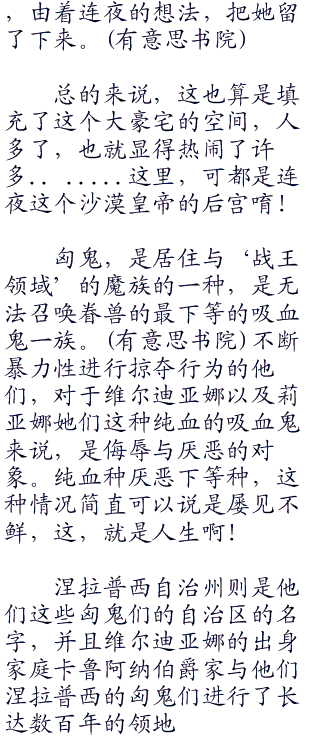 ，由着连夜的想法，把她留
了下来。(有意思书院)
总的来说，这也算是填
充了这个大豪宅的空间，人
多了，也就显得热闹了许
多.. .....这里，可都是连
夜这个沙漠皇帝的后宫唷！
匈鬼，是居住与‘战王
领域’的魔族的一种，是无
法召唤眷兽的最下等的吸血
鬼一族。(有意思书院)不断
暴力性进行掠夺行为的他
们，对于维尔迪亚娜以及莉
亚娜她们这种纯血的吸血鬼
来说，是侮辱与厌恶的对
象。纯血种厌恶下等种，这
种情况简直可以说是屡见不
鲜，这，就是人生啊！
涅拉普西自治州则是他
们这些匈鬼们的自治区的名
字，并且维尔迪亚娜的出身
家庭卡鲁阿纳伯爵家与他们
涅拉普西的匈鬼们进行了长
达数百年的领地